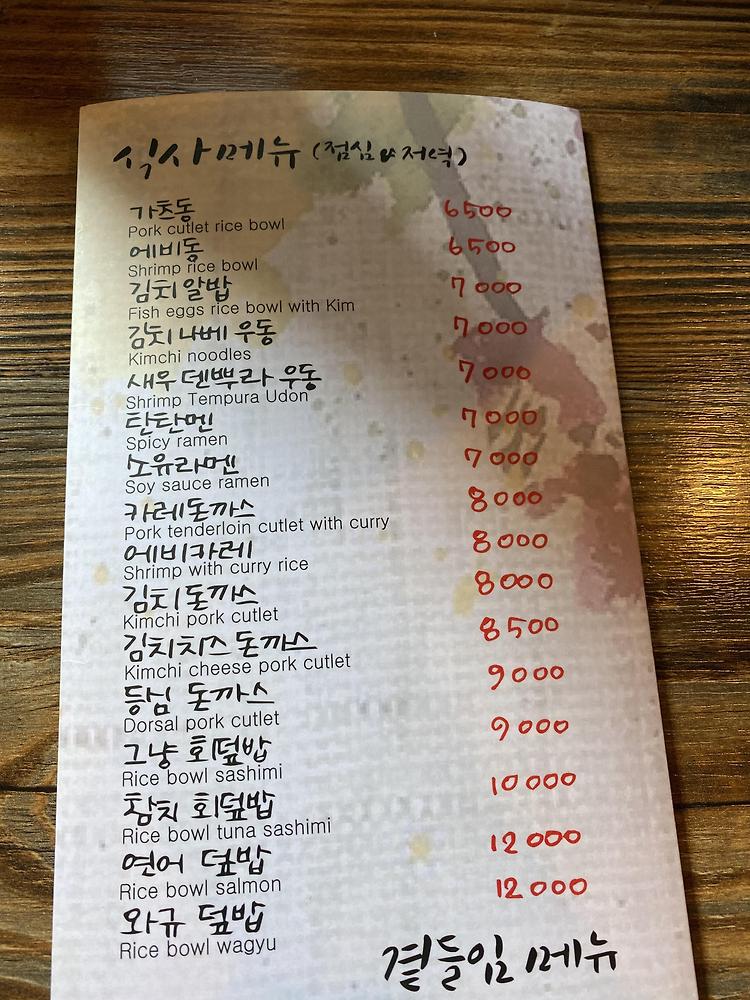 식사메뉴 (점심 & 저녁)
가츠동 6500
Pork cutlet rice bowl
에비동 6500
Shrimp rice bowl
김치 알밥 7000
Fish eggs rice bowl with Kim
김치 나베 우동 7000
Kimchi noodles
새우 덴뿌라 우동 7000
Shrimp Tempura Udon
탄탄멘 7000
Spicy ramen
쇼유라멘 7000
Soy sauce ramen
카레돈까스 8000
Pork tenderloin cutlet with curry
에비카레 8000
Shrimp with curry rice
김치돈까스 8000
Kimchi pork cutlet
김치치즈 돈까스 8500
Kimchi cheese pork cutlet
등심 돈까스 9000
Dorsal pork cutlet
그냥 회덮밥 9000
Rice bowl sashimi
참치 회덮밥 10000
Rice bowl tuna sashimi
연어 덮밥 12000
Rice bowl salmon
와규 덮밥 12000
Rice bowl wagyu
곁들임 메뉴